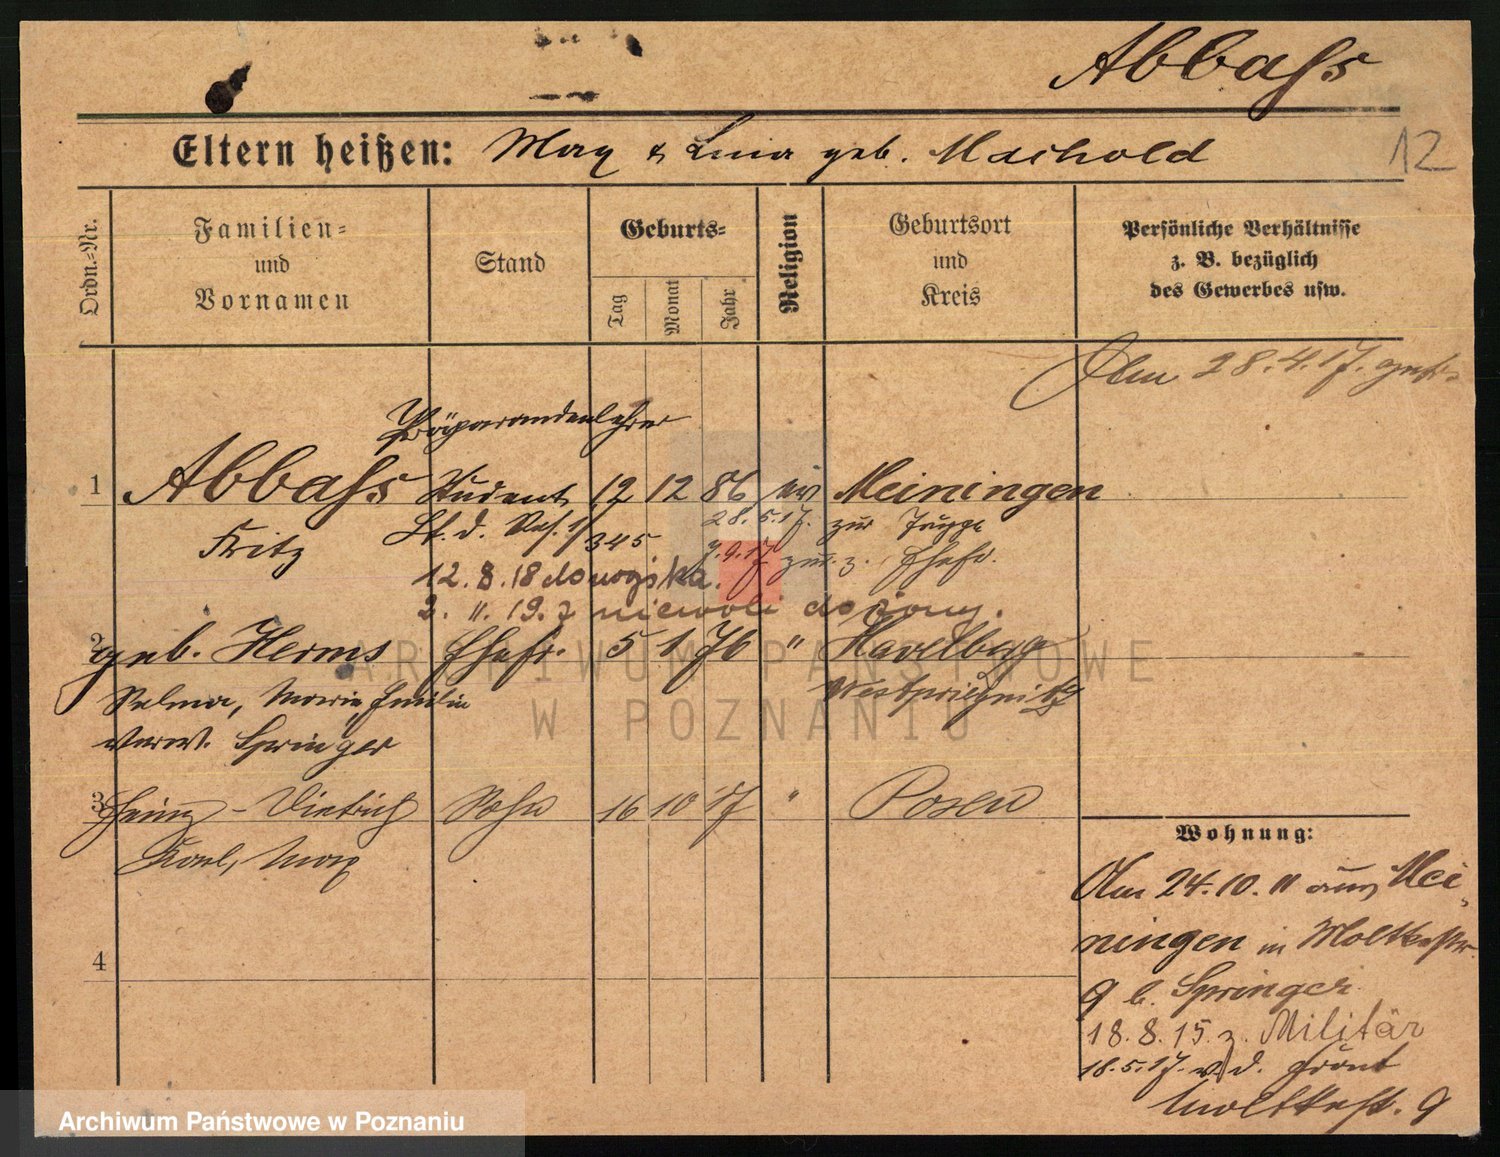 Abbaſs
Eltern heißen: Max & Lina geb. Machold
12
Ordn.-Nr.
Familien-
und
Vornamen
Stand
Geburts-
Tag
Monat
Jahr
Religion
Geburtsort
und
Kreis
Persönliche Verhältnisse
z. B. bezüglich
des Gewerbes usw.
Am 28.4.17.
Präparandenlehrer
1 Abbaſs Student 12 12 86 ev Meiningen
Fritz Lt. d. Res. 345 28.5.17. zur Truppe
7.9.17 zur. z. Ehefr.
12. 8. 18 do wojska.
2. 11. 19. z niewoli do żony.
2 geb. Herms Ehefr. 5 1 76 " Havelberg
Selma, Marie Emilie Westpriegnitz
verw. Springer
3 Heinz-Dietrich Sohn 16 10 17 " Posen
Karl, Max
4
Wohnung:
Am 24.10.11 aus Mei-
ningen in Moltkestr.
9 b. Springer
18.8.15 z. Militär
18.5.17. v. d. Front
Moltkestr. 9
ARCHIWUM PAŃSTWOWE
W POZNANIU
Archiwum Państwowe w Poznaniu